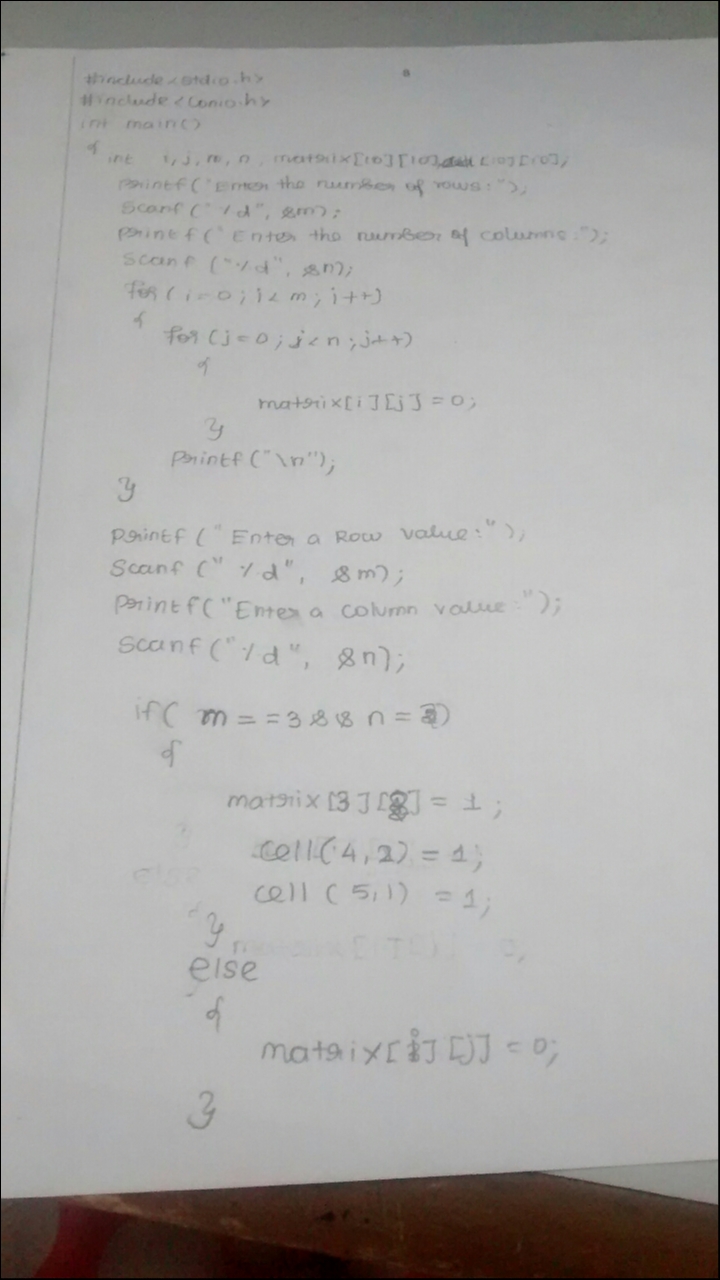 #include<stdio.h>
#include<conio.h>
int main()
{
int i,j,m,n, matrix[10][10], cell[10][10];
printf("Enter the number of rows:");
scanf("%d", &m);
printf("Enter the number of columns:");
scanf("%d", &n);
for(i=0;i<m;i++)
{
for(j=0;j<n;j++)
{
matrix[i][j]=0;
}
printf("\n");
}
printf("Enter a Row value:");
scanf("%d", &m);
printf("Enter a column value:");
scanf("%d", &n);
if( m==3 && n= )
{
matrix[3][ ]=1;
cell(4,2)=1;
cell(5,1)=1;
}
else
{
matrix[i][j]=0;
}